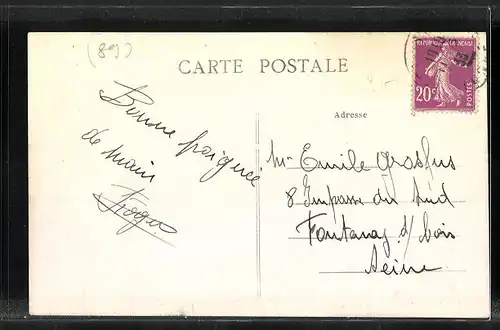 (89)
CARTE POSTALE
REPUBLIQUE FRANCAISE
20c
POSTES
Adresse
Bonne poignée
de main
Roger
Mr Emile Grosfus
8 Impasse du Sud
Fontenay s/ bois
Seine